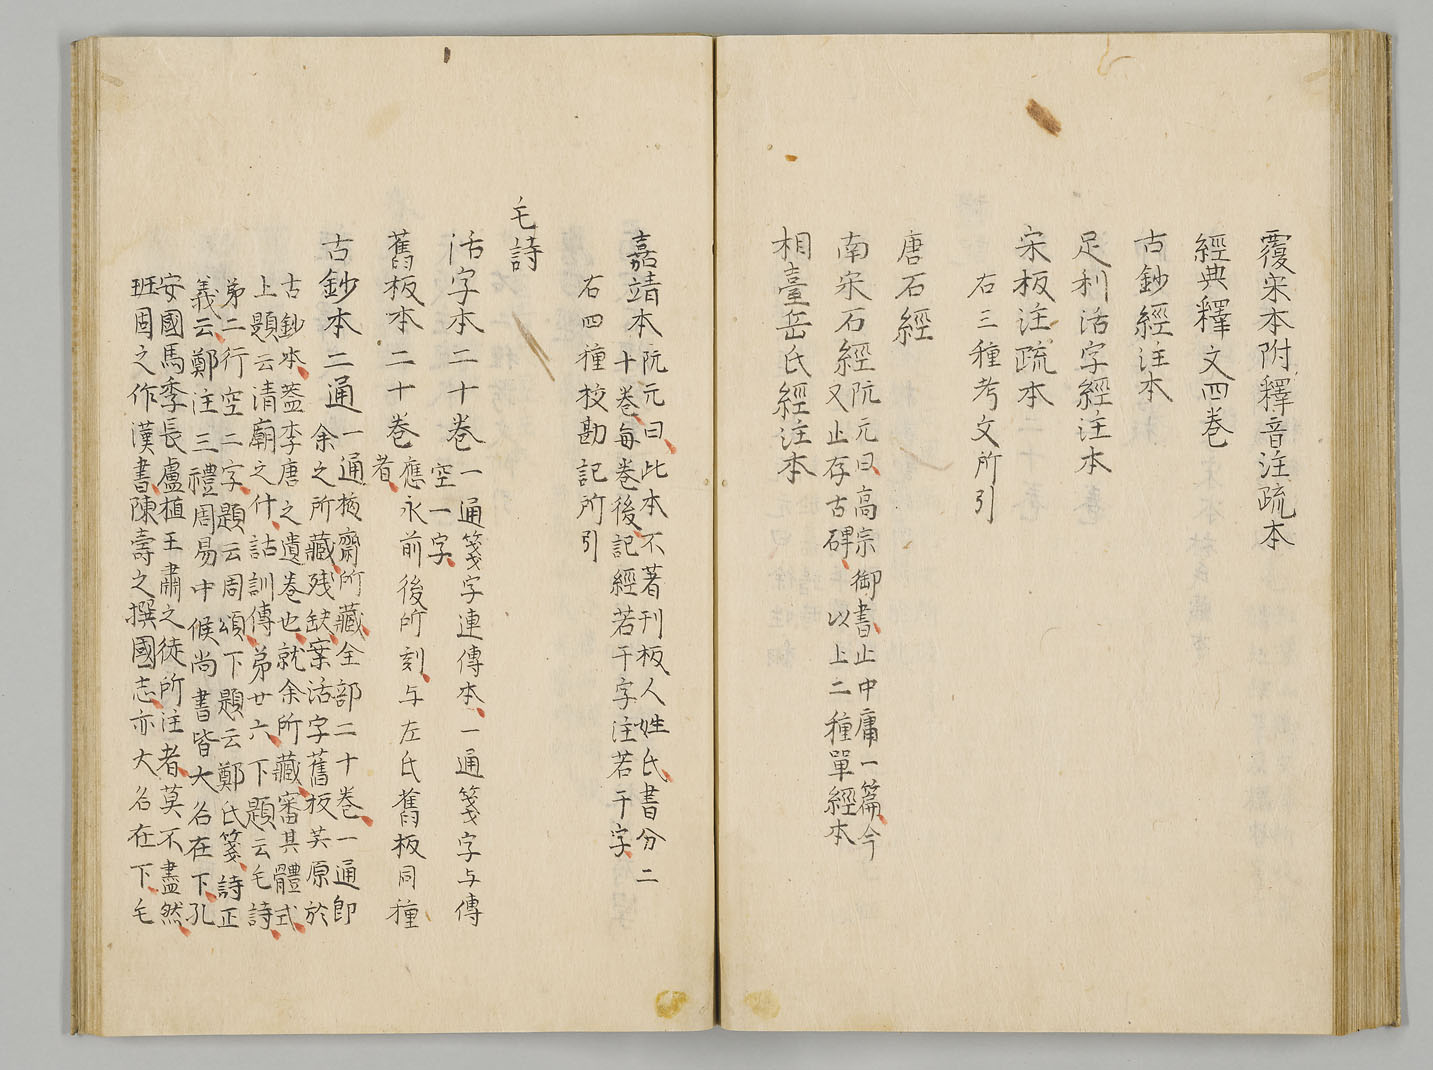 覆宋本附釋音注疏本
經典釋文四卷
古鈔經注本
足利活字經注本
宋板注疏本
右三種考文所引
唐石經
南宋石經阮元曰高宗御書止中庸一篇今
又止存古碑以上二種單經本
相臺岳氏經注本
嘉靖本阮元曰此本不著刊板人姓氏書分二
十卷每卷後記經若干字注若干字
右四種校勘記所引
毛詩
活字本二十卷一通箋字連傳本一通箋字与傳
空一字
舊板本二十卷應永前後所刻与左氏舊板同種
者
古鈔本二通一通棭齋所藏全部二十卷一通即
余之所藏残缺案活字舊板共原於
古鈔本蓋李唐之遺卷也就余所藏審其體式
上題云清廟之什詁訓傳弟廿六下題云毛詩
弟二行空二字題云周頌下題云鄭氏箋詩正
義云鄭注三禮周易中候尚書皆大名在下孔
安國馬季長盧植王肅之徒所注者莫不盡然
班固之作漢書陳壽之撰國志亦大名在下毛